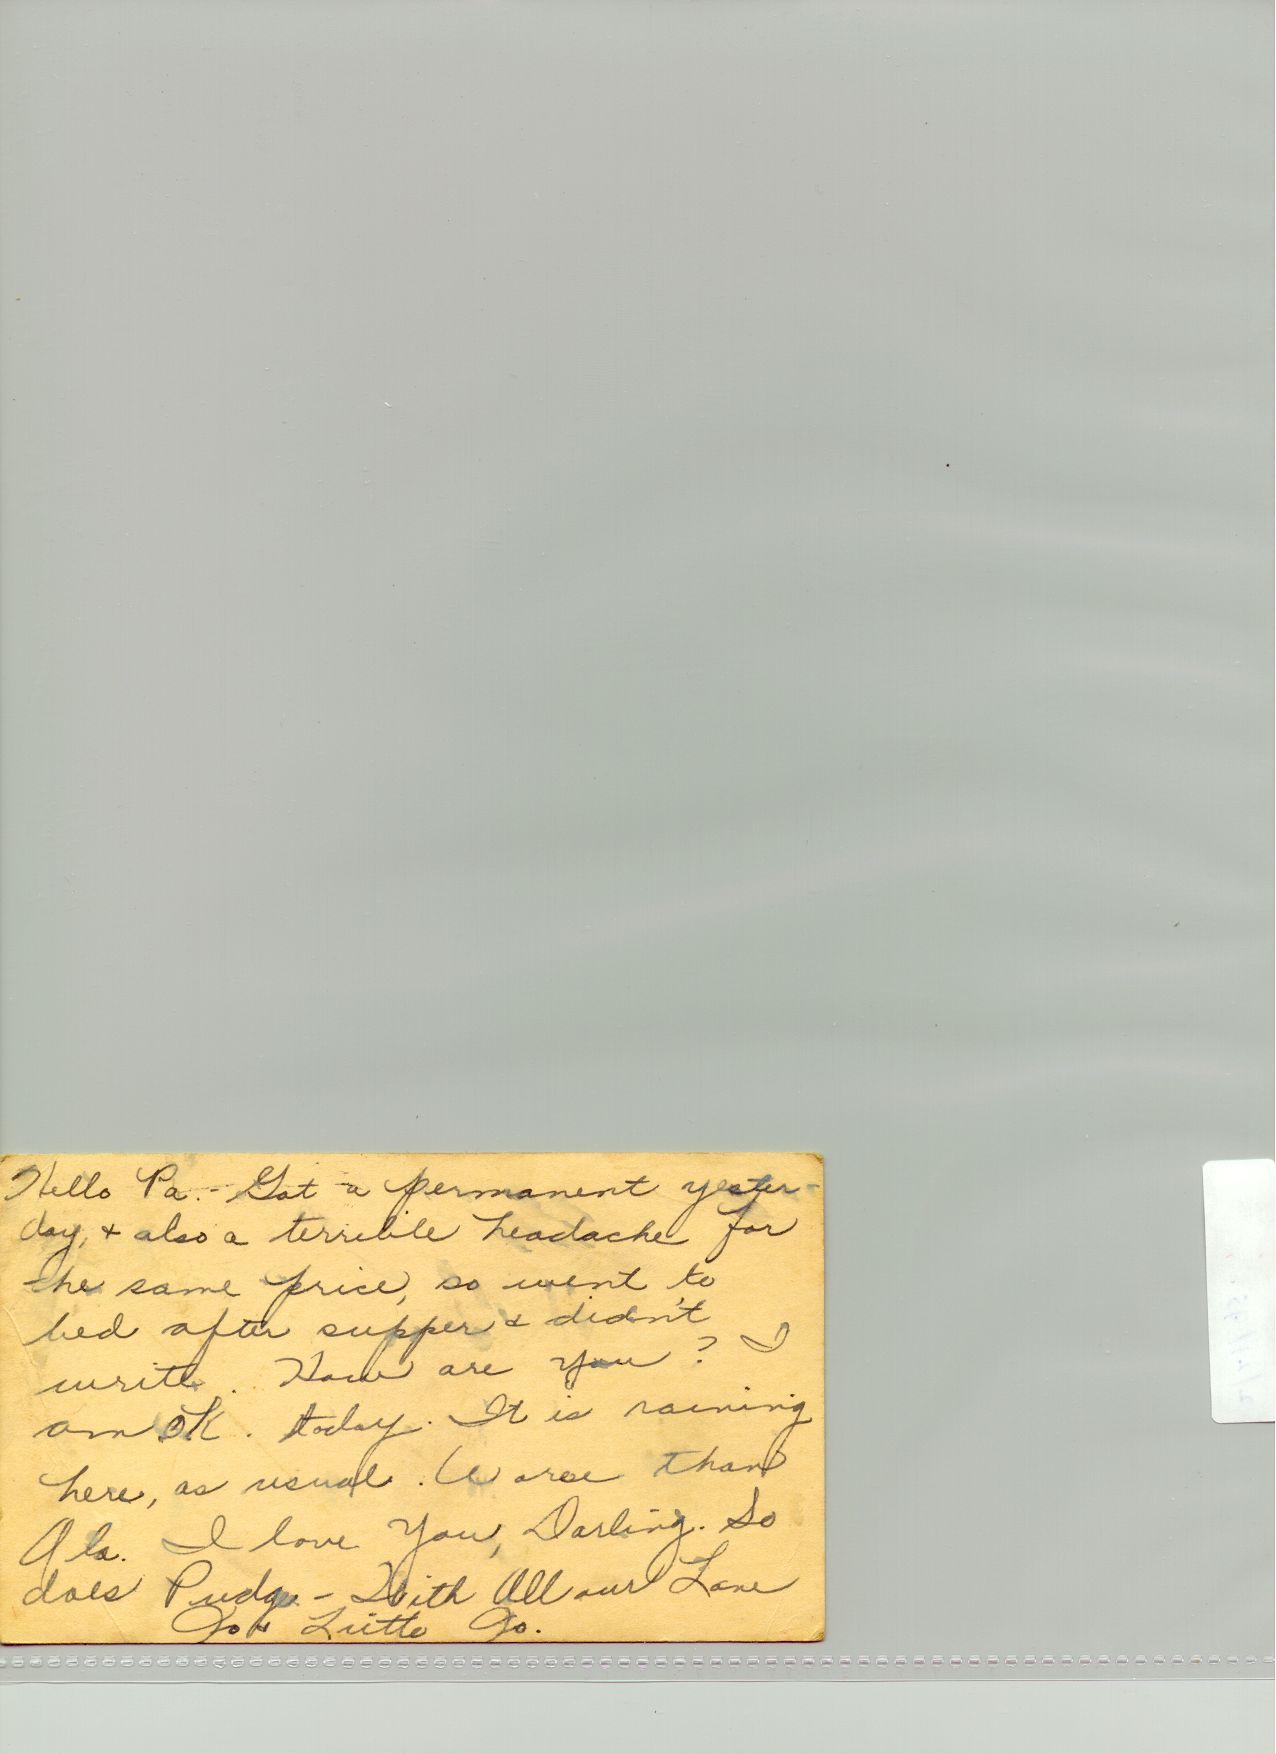 Hello Pa. - Got a permanent yester-
day, + also a terrible headache for
the same price, so went to
bed after supper & didn't
write. How are you? I
am OK. today. It is raining
here, as usual. Worse than
Ala. I love You, Darling. So
does Pudge - With All our Love
Jo + Little Jo.